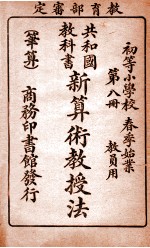 教育部審定
初等小學校 春季始業
第八冊 教員用
共和國
教科書
新算術教授法
(筆算)
商務印書館發行